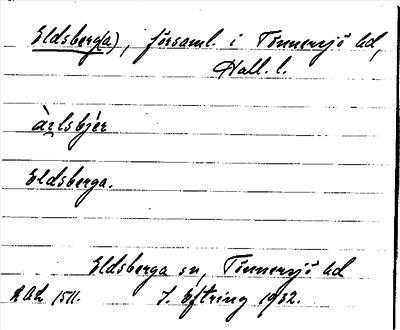 Eldsberg(a), församl. i Tönnersjö hd,
Hall. l.
àrlsbjér
Eldsberga.
Eldsberga sn, Tönnersjö hd
J. Eftring 1932.